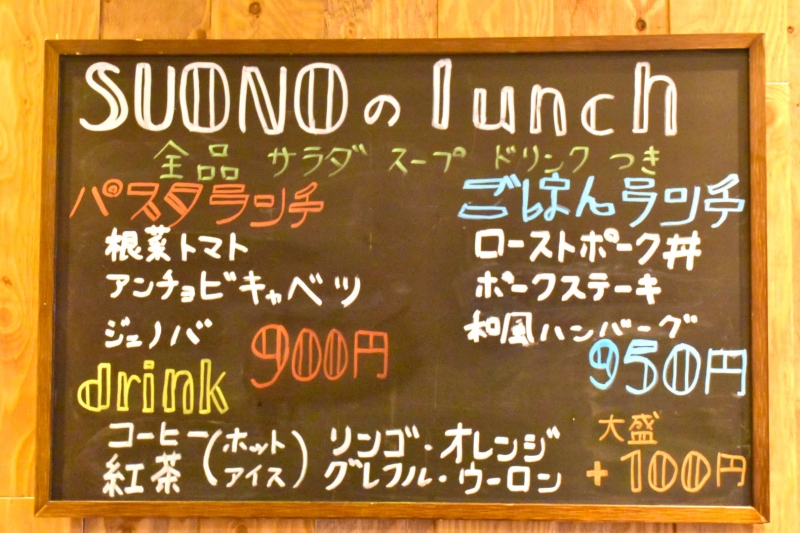 SUONOのlunch
全品 サラダ スープ ドリンク つき
パスタランチ
根菜トマト
アンチョビキャベツ
ジェノバ
900円
ごはんランチ
ローストポーク丼
ポークステーキ
和風ハンバーグ
950円
drink
コーヒー
紅茶
(ホット
アイス)
リンゴ・オレンジ
グレフル・ウーロン
大盛
+100円